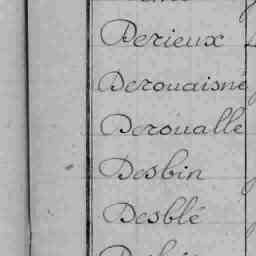 Derieux
Derouaisné
Deroualle
Desbin
Desblé